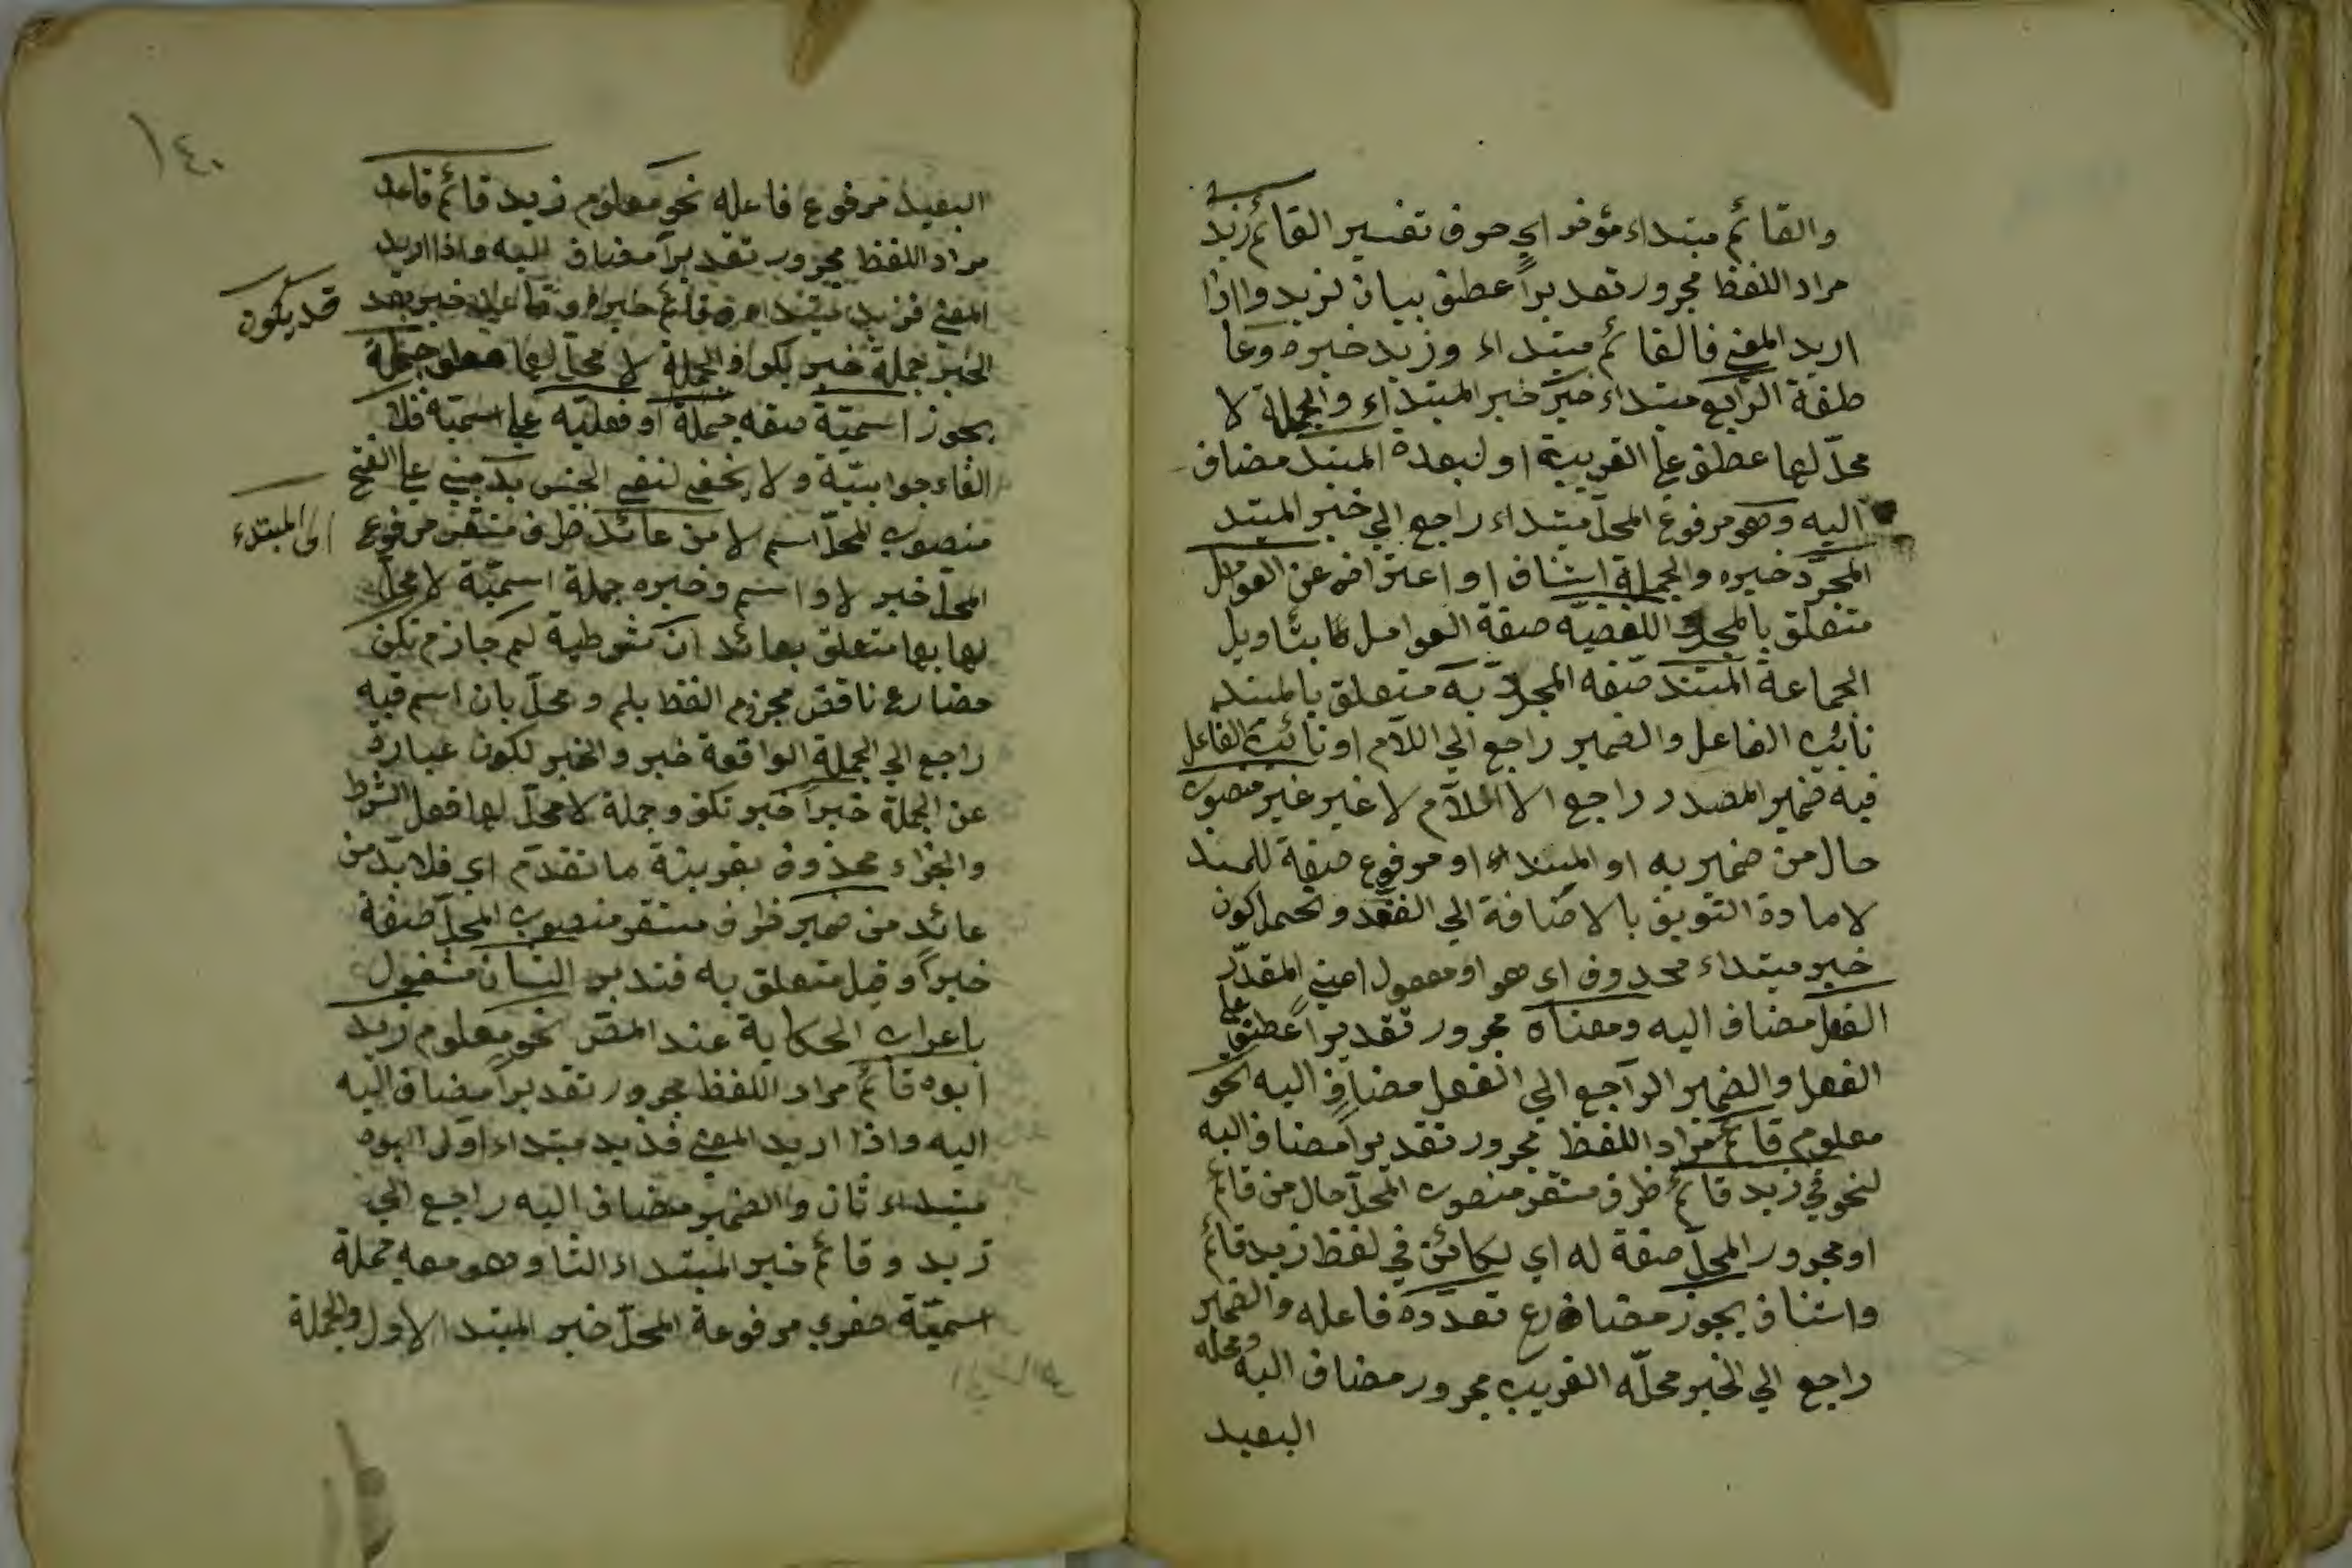 والقائم مبتداء مؤخر اي حرف تفسير القائم زيد
مراد اللفظ مجرور تقديراً عطف بيان لزيد واذا
اريد المعنى فالقائم مبتداء وزيد خبره وعا
طفة الرابع مبتداء خبر خبر المبتداء والجملة لا
محلّ لها عطف على القريبة او لبعده المبتد مضاف
اليه وهو مرفوع المحلّ مبتداء راجع الي خبر المبتد
المجرّد خبره والجملة استناف او اعتراض عن العوامل
متعلق بالمجرد اللفضيّه صفة العوامل بتاويل
الجماعة المبتند صفه المجرد به متعلق بالمبتند
نائب الفاعل والضمير راجع الي اللّام او نائب الفاعل
فيه ضمير المصدر راجع الا اللّام لا غير غير منصوب
حال من ضمير به او المبتداء او مرفوع صفة للمبتد
لا مادة التوبيق بالاضافة الي الفقد ويحتمل كون
خبر مبتداء محذوف اى هو او مفعول اعني المقدّر
الفعل مضاف اليه ومعناه مجرور تقديراً عطف على
الفعل والضمير الراجع الي الفعل مضاف اليه نحو
معلوم قائم مراد اللفظ مجرور تقديراً مضاف اليه
لنحو في زيد قائم ظرف مستقر منصوب المحلّ حال من قائم
او مجرور المحلّ صفة له اي لكائن في لفظ زيد قائم
واستناف يجوز مضارع تعدّده فاعله والضمير
راجع الي الخبر محلّه القريب مجرور مضاف اليه ومحله
البعيد
١٤٠
البعيد مرفوع فاعله نحو معلوم زيد قائم قاعد
مراد اللفظ مجرور تقديراً مضاف اليه واذا اريد
المعنى فزيد مبتداء وقائم خبره وقاعد خبر بعد
قد يكون
الخبر جملة خبر يكون والجملة لا محلّ لها جملة
يجوز اسميّة صفه جملة او فعليّه على اسميّه فلا
الفاء جوابيّة ولا يخفى لنفي الجنس بدّ مبني على الفتح
منصوب المحلّ اسم لا من عائد ظرف مستقر مرفوع
الى المبتداء
المحلّ خبر لا واسم وخبره جملة اسميّة لا محلّ
لها بها متعلق بعائد ان شرطية لم جازم تكن
مضارع ناقص مجزوم الفظ بلم ومحلّ بان اسم فيه
راجع الي الجملة الواقعة خبر والخبر لكون عبارة
عن الجملة خبراً خبر تكن وجملة لا محلّ لها فعل الشرط
والجزاء محذوف بقرينة ما تقدّم اي فلا بدّ من
عائد من ضمير ظرف مستقر منصوب المحلّ صفة
خبراً وقيل متعلق به فتدبر النسان مشغول
باعراب الحكاية عند المصّ نحو معلوم زيد
ابوه قائم مراد اللفظ مجرور تقديراً مضاف اليه
اليه واذا اريد المعنى فزيد مبتداء اول ابوه
مبتداء ثان والضمير مضاف اليه راجع الي
زيد وقائم خبر المبتداء الثا وهو معه جملة
اسميّة صغرى مرفوعة المحلّ خبر المبتدا الاول والجملة